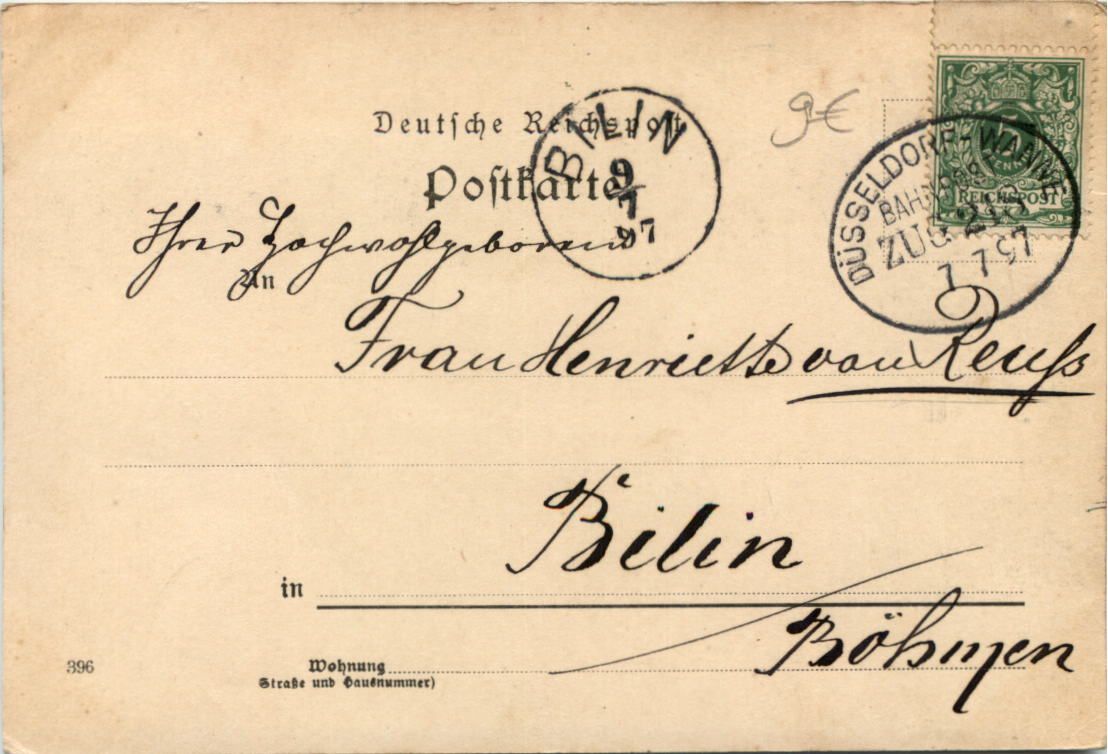 Deutsche Reichspost
Postkarte
BILIN
9/7
97
9€
5
PFENNIG
REICHSPOST
DÜSSELDORF-WANNE
BAHNPOST
ZUG
7 7 97
Ihrer Hochwohlgeboren
An
Frau Henriette von Reuß
in Bilin
Böhmen
396
Wohnung
Straße und Hausnummer)